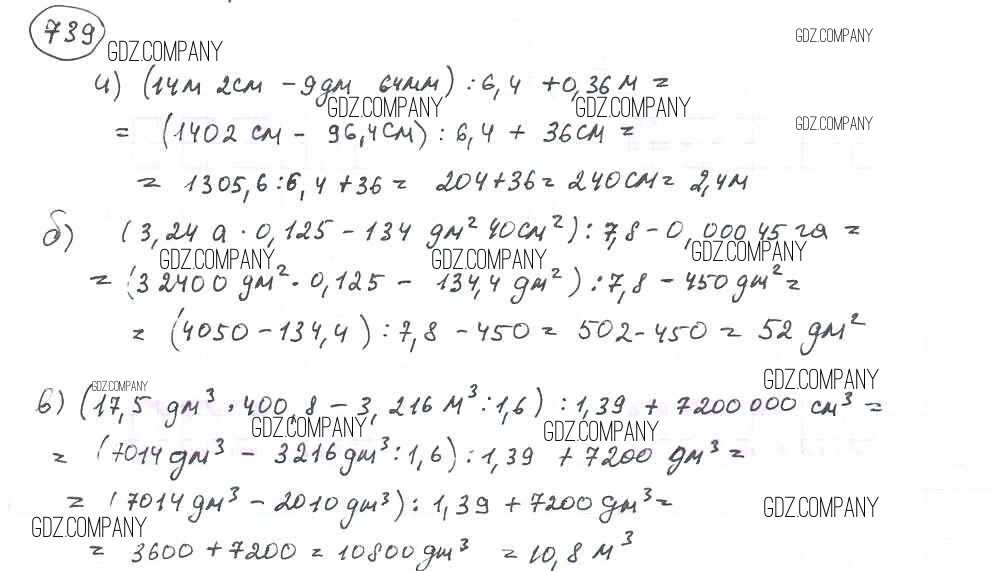 739
GDZ.COMPANY GDZ.COMPANY
а) (14м 2см - 9дм 64мм) : 6,4 + 0,36 м =
GDZ.COMPANY GDZ.COMPANY
= (1402 см - 96,4см) : 6,4 + 36см =
GDZ.COMPANY
= 1305,6 : 6,4 + 36 = 204 + 36 = 240см = 2,4м
б) (3,24 а · 0,125 - 134 дм² 40см²) : 7,8 - 0,00045 га =
GDZ.COMPANY GDZ.COMPANY GDZ.COMPANY
= (32400 дм² · 0,125 - 134,4 дм²) : 7,8 - 450 дм² =
= (4050 - 134,4) : 7,8 - 450 = 502 - 450 = 52 дм²
GDZ.COMPANY GDZ.COMPANY
в) (17,5 дм³ · 400,8 - 3,216 м³ : 1,6) : 1,39 + 7200 000 см³ =
GDZ.COMPANY GDZ.COMPANY
= (7014 дм³ - 3216 дм³ : 1,6) : 1,39 + 7200 дм³ =
= (7014 дм³ - 2010 дм³) : 1,39 + 7200 дм³ =
GDZ.COMPANY GDZ.COMPANY
= 3600 + 7200 = 10800 дм³ = 10,8 м³